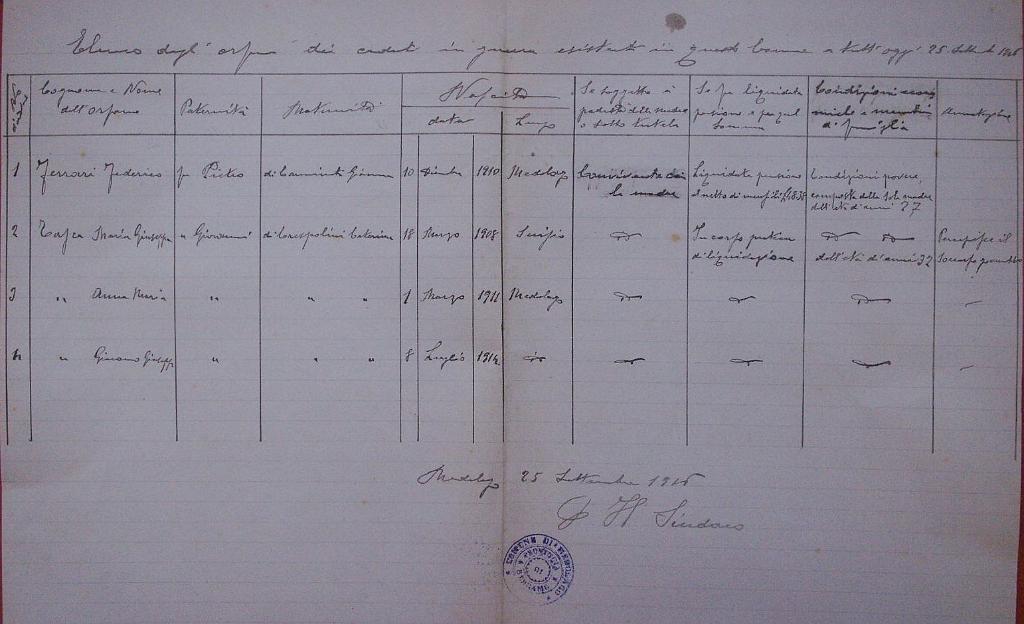 Elenco degl'orfani dei caduti in guerra esistenti in questo Comune a tutt'oggi 25 Settembre 1916
Cognome e Nome dell'orfano
Paternità
Maternità
Nascita
data
Luogo
Se soggetto a podestà della madre o sotto tutela
Se fu liquidata pensione e per qual somma
Condizioni di famiglia
Annotazioni
1 Ferrari Federico fu Pietro di Gemma 10 1910 Medolago la madre Liquidata pensione Condizioni povere, composta della sola madre dell'età d'anni 27
2 Maria Giuseppa " Giovanni di Crespolini Caterina 18 Marzo 1908 Suisio In corso pratica di liquidazione dell'età d'anni 32 Percepisce il
3 " Anna Maria " " " 1 Marzo 1911 Medolago
4 " " " " 8 Luglio 1914
Medolago 25 Settembre 1916
Il Sindaco
COMUNE DI MEDOLAGO
PROVINCIA DI BERGAMO